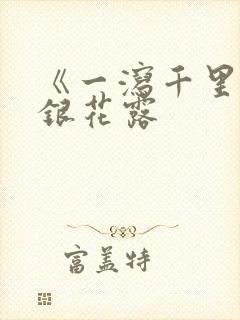 《一瀉千里
銀花露
富盖特